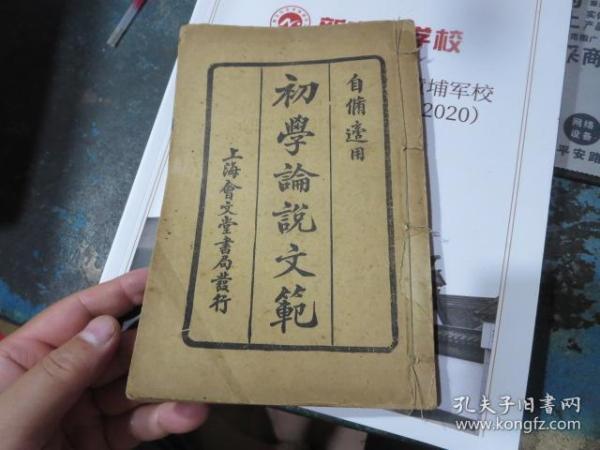 自脩適用
初學論說文範
上海會文堂書局發行
學校
埔军校
2020）
网络
设备
平安路
孔夫子旧书网
www.kongfz.com